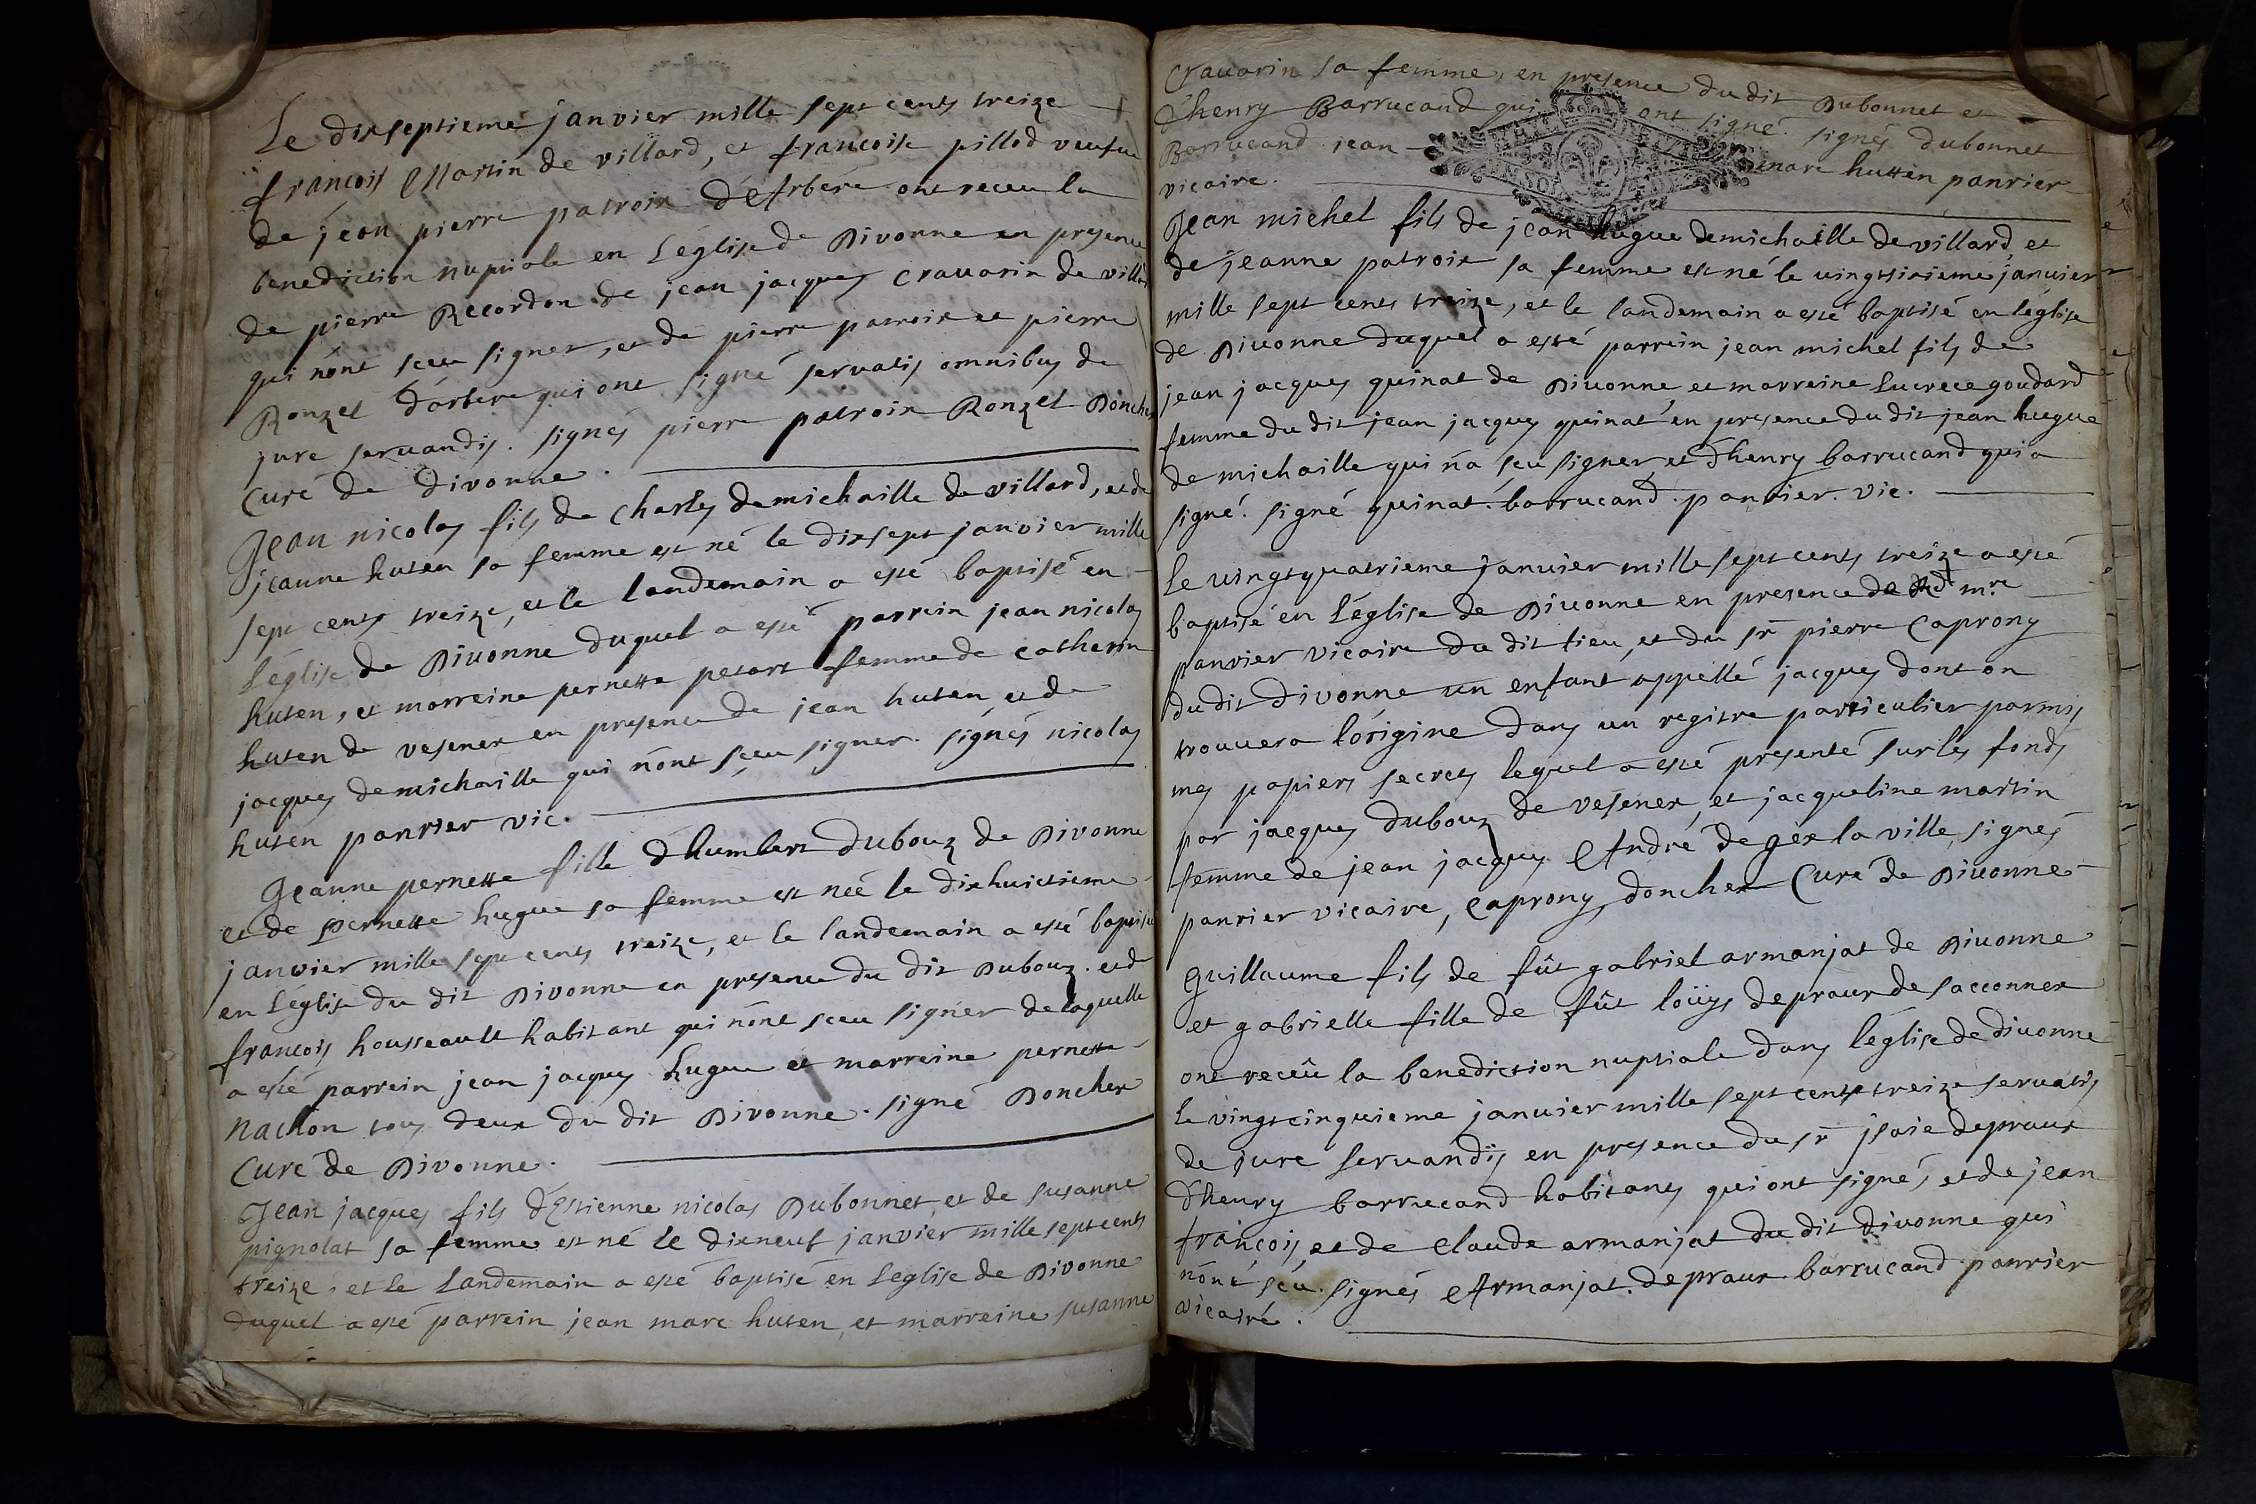 Le dixseptieme janvier mille sept cents treize
francois Martin de villard, et francoise pillod veufue
de jean pierre patroix d'Arbére ont receu la
benediction nuptiale en L'église de Divonne en presence
de pierre Recordon de jean jacques Cravarin de villard
qui nônt sceu signer, et de pierre patroix et pierre
Ronzel d'arbere qui ont signé servatis omnibus de
jure servandis. signés pierre patroix Ronzel Doncher
Curé de divonne.
Jean nicolas fils de Charles demichaille de villard, et de
jeanne huten sa femme est né le dixsept janvier mille
sept cents treize, et le landemain a esté baptisé en
L'église de Divonne duquel a esté parrein jean nicolas
huten, et marreine pernette petart femme de catherin
huten de vesenex en presence de jean huten, et de
jacques demichaille qui nônt sçeu signer. signés nicolas
huten panrier vic.
Jeanne pernette fille d'humbert Dubouz de Divonne
et de pernette hugue sa femme est née le dixhuictieme
janvier mille sept cents treize, et le landemain a esté baptisée
en L'église du dit Divonne en presence du dit Dubouz. et de
francois housseault habitant qui nônt sceu signer de laquelle
a esté parrein jean jacques hugue et marreine pernette
nachon tous deux du dit Divonne. signé Doncher
Curé de Divonne.
Jean jacques fils d'Estienne nicolas Dubonnet, et de susanne
pignolat sa femme est né le dixneuf janvier mille sept cents
treize, et le Landemain a esté baptisé en L'eglise de Divonne
duquel a esté parrein jean marc huten, et marreine susanne
Cravarin sa femme, en presence du dit Dubonnet et
d'henry Barrucand qui ont signé. signés dubonnet
Barrucand jean marc hutten panrier
vicaire.
Jean michel fils de jean hugue demichaille de villard, et
de jeanne patroix sa femme est né le vingtsixieme janvier
mille sept cents treize, et le landemain a esté baptisé en l'église
de Divonne duquel a esté parrein jean michel fils de
jean jacques quinat de Divonne, et marreine Lucrece goudard
femme du dit jean jacques quinat en presence du dit jean hugue
de michaille qui n'a sçu signer et d'henry barrucand qui a
signé. signé quinat. barrucand. panrier. vic.
Le vingtquatrieme janvier mille sept cents treize a esté
baptisé en L'église de Divonne en presence de Rd mre
panrier vicaire du dit lieu, et du sr pierre Caprony
du dit divonne un enfant appellé jacques dont on
trouvera l'origine dans un registre particulier parmis
mes papiers secrets lequel a esté presenté sur les fonds
par jacques dubouz de vesenex, et jacqueline martin
femme de jean jacques André de gex la ville, signés
panrier vicaire, Caprony, doncher Curé de Divonne
Guillaume fils de fût gabriel armanjat de Divonne
et gabrielle fille de fût loüys depraux de sacconnex
ont receû la benediction nuptiale dans l'église de divonne
Le vingtcinquieme janvier mille sept cents treize servatis
de jure servandis en presence du sr jsaie depraux
d'henry barrucand habitans qui ont signés, et de jean
françois, et de Claude armanjat du dit divonne qui
nônt sçu. signés Armanjat. depraux. barrucand panrier
vicaire.